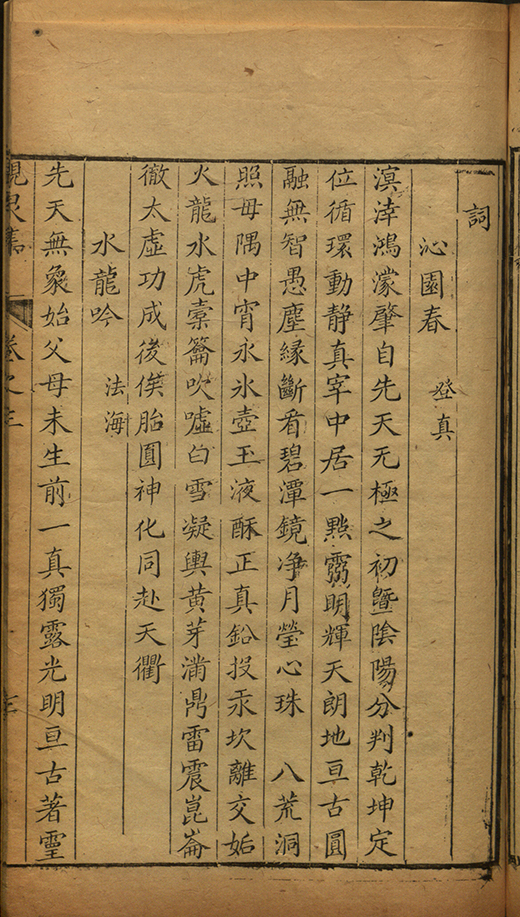 詞
沁園春　登真
溟涬鴻濛肇自先天无極之初曁陰陽分判乾坤定
位循環動静真宰中居一點靈明輝天朗地亘古圓
融無智愚塵緣斷看碧潭鏡净月瑩心珠　八荒洞
照毋隅中宵永氷壺玉液酥正真鉛投汞坎離交姤
火龍水虎槖籥吹噓白雪凝輿黄芽滿鼎雷震崑崙
徹太虛功成後俟胎圓神化同赴天衢
水龍吟　法海
先天無象始父母未生前一真獨露光明亘古著靈
峴泉集　卷之